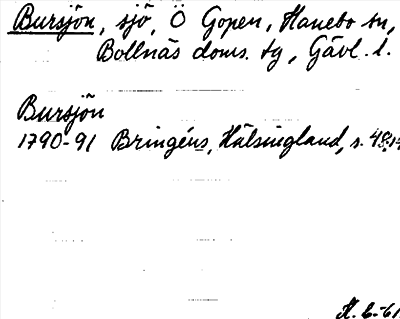 Bursjön, sjö, Ö Gopen, Hanebo sn,
Bollnäs doms. tg, Gävl. l.
Bursjön
1790-91 Bringéus, Hälsingland, s. 48,
H. G-61